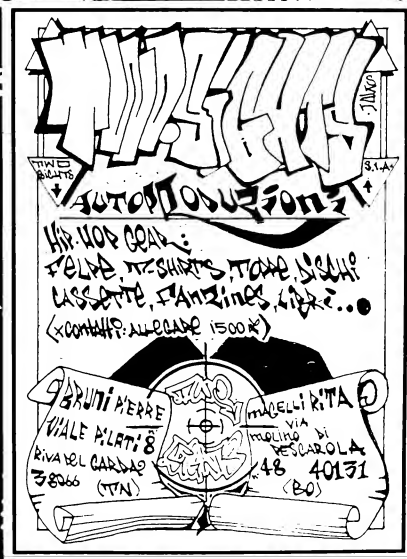 TWO.SIGHTS
TWO
SIGHTS
S.I.A.
AUTOPRODUZIONI
HIP-HOP GEAR:
FELPE, T-SHIRTS, TOPPE, DISCHI
CASSETTE, FANZINES, LIBRI...
(x CONTATTI: ALLEGARE 1500 £)
BRUNI PIERRE
VIALE PILATI 8
RIVA DEL GARDA
38066 (TN)
TWO
SIGHTS
MAGELLI RITA
VIA
MOLINO DI
PESCAROLA
48 40131
(BO)